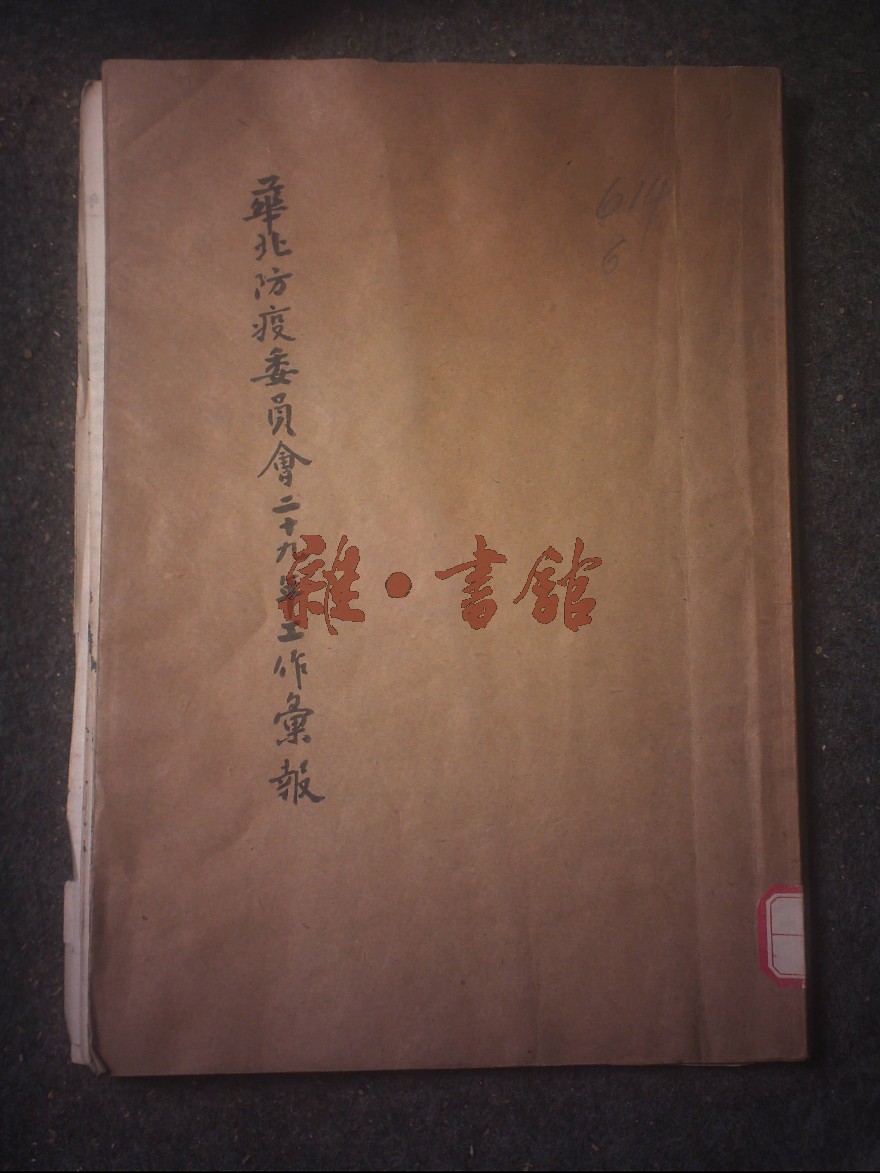 華北防疫委員會二十九年工作彙報
614
6
雜·書館